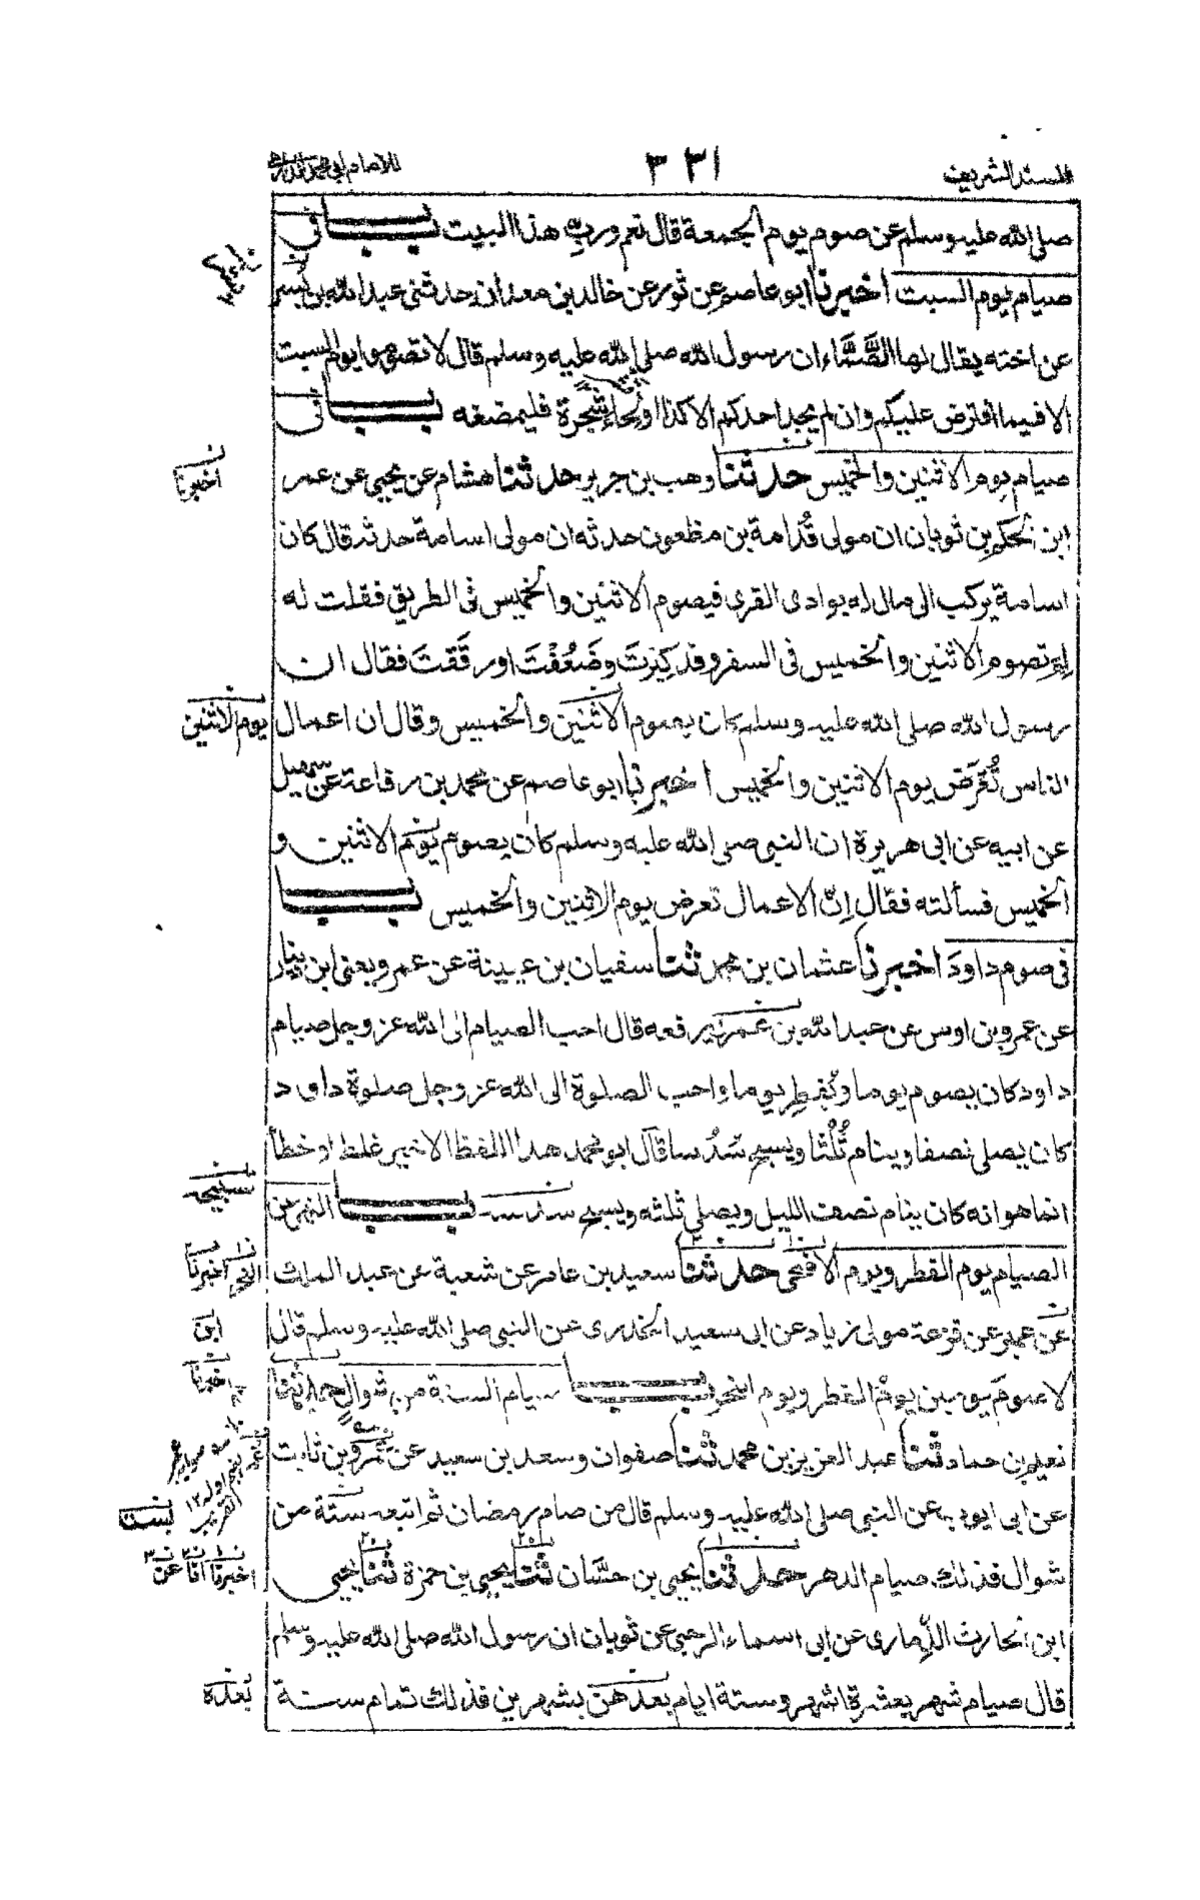 للمسند الشريف
٣٣١
للامام ابي محمد الدارمي
صلى الله عليه وسلم عن صوم يوم الجمعة قال نعم ورب هذا البيت باب في
صيام يوم السبت اخبرنا ابو عاصم عن ثور عن خالد بن معدان حدثنى عبد الله بن بسر
عن اخته يقال لها الصَّمَّاء ان رسول الله صلى الله عليه وسلم قال لا تصوموا يوم السبت
الا فيما افترض عليكم وان لم يجد احدكم الا كذا او لحاء شجرة فليمضغه باب في
صيام يوم الاثنين والخميس حدثنا وهب بن جرير حدثنا هشام عن يحيى عن عمر
اخبرنا
ابن الحكم بن ثوبان ان مولى قُدامة بن مظعون حدثه ان مولى اسامة حدثه قال كان
اسامة يركب الى مال له بوادى القرى فيصوم الاثنين والخميس في الطريق فقلت له
لِمَ تصوم الاثنين والخميس فى السفر وقد كبِرتَ وضَعُفْتَ او رقَقتَ فقال ان
رسول الله صلى الله عليه وسلم كان يصوم الاثنين والخميس وقال ان اعمال
يوم الاثنين
الناس تُعْرَض يوم الاثنين والخميس اخبرنا ابو عاصم عن محمد بن رفاعة عن سهيل
عن ابيه عن ابى هريرة ان النبى صلى الله عليه وسلم كان يصوم يوم الاثنين و
الخميس فسألته فقال اِنّ الاعمال تعرض يوم الاثنين والخميس باب
فى صوم داودَ اخبرنا عثمان بن محمد ثنا سفيان بن عيينة عن عمرو يعنى ابن دينار
عن عمرو بن اوس عن عبد الله بن عمر يرفعه قال احب الصيام الى الله عز وجل صيام
داود كان يصوم يوما ويُفطِر يوما واحب الصلوة الى الله عز وجل صلوة داود
كان يصلى نصفا وينام ثُلُثا ويسبح سُدُسا قال ابو محمد هذا اللفظ الاخير غلط او خطأ
انما هو انه كان ينام نصف الليل ويصلي ثلثه ويسبح سدسه باب النهى عن
تسبيحه
الصيام يوم الفطر ويوم الاضحى حدثنا سعيد بن عامر عن شعبة عن عبد الملك
النحر اخبرنا
عن عمير عن قزعة مولى زياد عن ابى سعيد الخدرى عن النبى صلى الله عليه وسلم قال
ابن
لا صومَ يومين يوم الفطر ويوم النحر باب صيام الستة من شوال حدثنا
اخبرنا
نعيم بن حماد ثنا عبد العزيز بن محمد ثنا صفوان وسعد بن سعيد عن عمرو بن ثابت
عن ابى ايوب عن النبى صلى الله عليه وسلم قال من صام رمضان ثم اتبعه ستة من
بست
شوال فذلك صيام الدهر حدثنا يحيى بن حسَّان ثنا يحيى بن حمزة ثنا يحيى
اخبرنا انا عن
ابن الحارث الذِّمارى عن ابى اسماء الرحبى عن ثوبان ان رسول الله صلى الله عليه وسلم
قال صيام شهر بعشرة اشهر وستة ايام بعدهن بشهرين فذلك تمام سنة
بعده